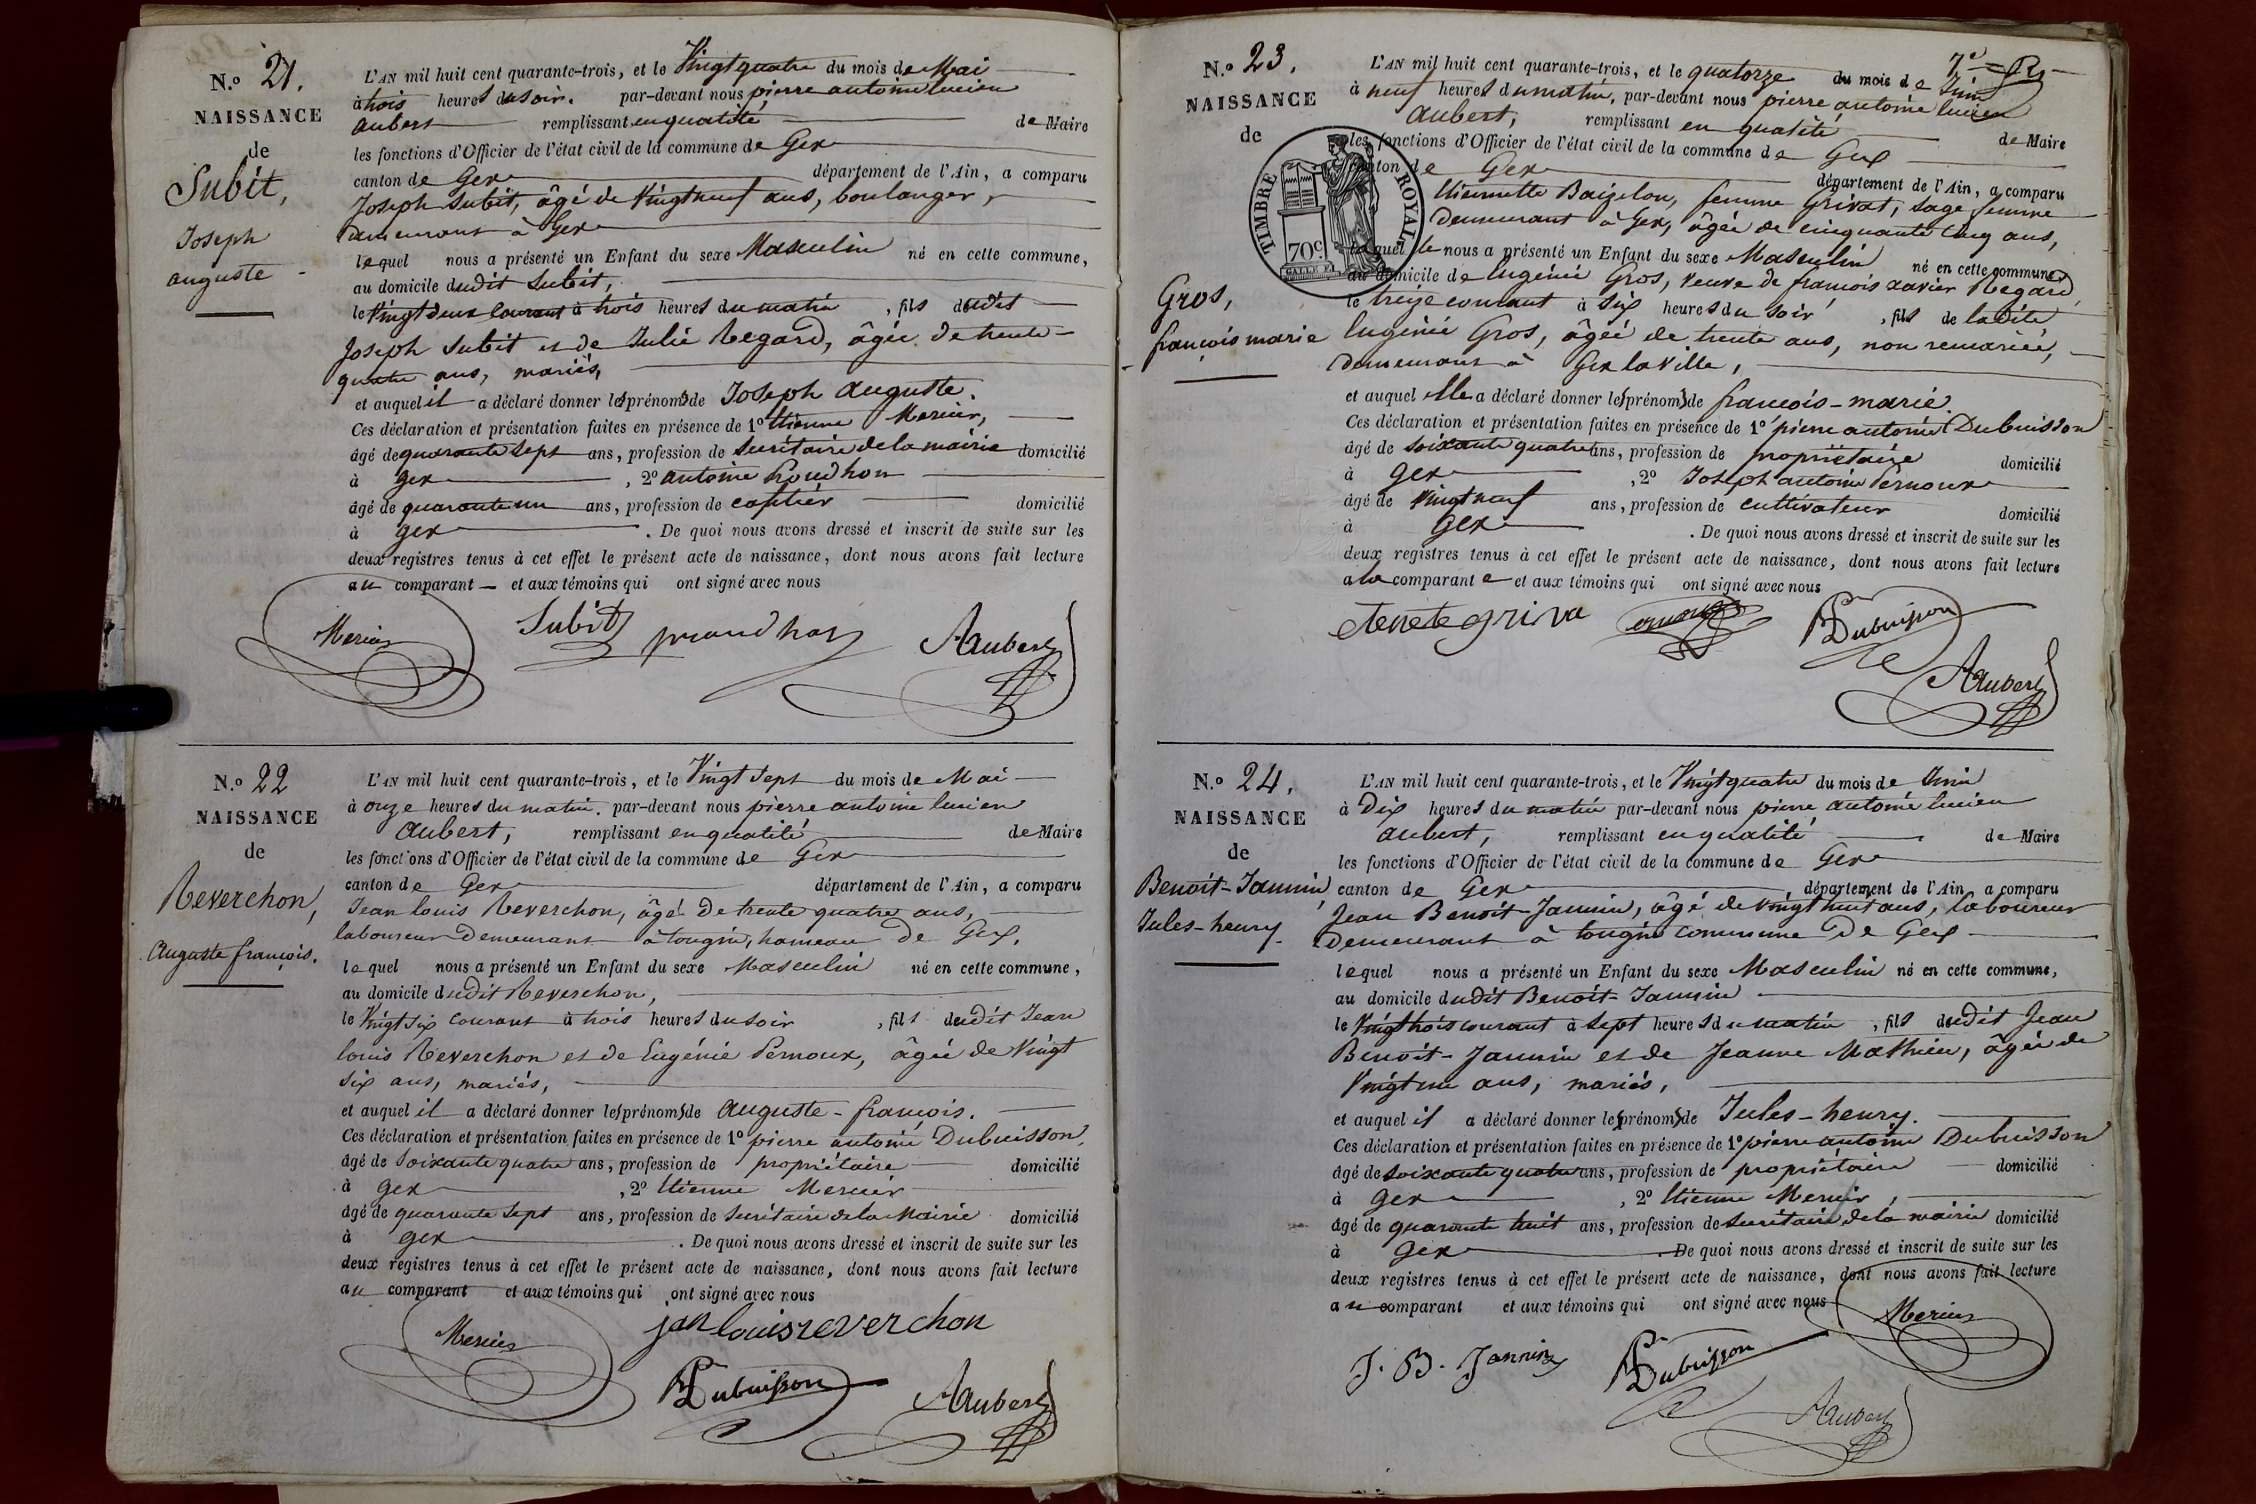 N.º 21.
NAISSANCE
de
Subit,
Joseph
auguste
L'AN mil huit cent quarante-trois, et le Vingt quatre du mois de Mai
à trois heures du soir. par-devant nous pierre antoine lucien
aubert remplissant en qualité de Maire
les fonctions d'Officier de l'état civil de la commune de Gex
canton de Gex département de l'Ain, a comparu
Joseph Subit, âgé de Vingt neuf ans, boulanger,
demeurant à Gex
lequel nous a présenté un Enfant du sexe Masculin né en cette commune,
au domicile dudit Subit,
le Vingt deux courant à trois heures du matin, fils dudit
Joseph Subit et de Julie Regard, âgée de trente-
quatre ans, mariés,
et auquel il a déclaré donner les prénoms de Joseph auguste.
Ces déclaration et présentation faites en présence de 1º Etienne Mercier,
âgé de quarante sept ans, profession de secrétaire de la mairie domicilié
à gex, 2º antoine Proudhon
âgé de quarante un ans, profession de cafetier domicilié
à gex. De quoi nous avons dressé et inscrit de suite sur les
deux registres tenus à cet effet le présent acte de naissance, dont nous avons fait lecture
au comparant et aux témoins qui ont signé avec nous
Mercier Subit proudhon Aaubert
N.º 22
NAISSANCE
de
Reverchon,
Auguste françois.
L'AN mil huit cent quarante-trois, et le Vingt sept du mois de Mai
à onze heures du matin. par-devant nous pierre antoine lucien
aubert, remplissant en qualité de Maire
les fonctions d'Officier de l'état civil de la commune de Gex
canton de Gex département de l'Ain, a comparu
Jean louis Reverchon, âgé de trente quatre ans,
laboureur demeurant à tougin, hameau de Gex,
lequel nous a présenté un Enfant du sexe Masculin né en cette commune,
au domicile dudit Reverchon,
le Vingt six courant à trois heures du soir, fils dudit Jean
louis Reverchon et de Eugénie Pernoux, âgée de Vingt
six ans, mariés,
et auquel il a déclaré donner les prénoms de auguste-françois.
Ces déclaration et présentation faites en présence de 1º pierre antoine Dubuisson,
âgé de soixante quatre ans, profession de propriétaire domicilié
à gex, 2º Etienne Mercier
âgé de quarante sept ans, profession de secrétaire de la Mairie domicilié
à gex. De quoi nous avons dressé et inscrit de suite sur les
deux registres tenus à cet effet le présent acte de naissance, dont nous avons fait lecture
au comparant et aux témoins qui ont signé avec nous
Mercier jan louis reverchon
Dubuisson Aaubert
7e
N.º 23.
NAISSANCE
de
TIMBRE ROYAL
70c
Gros,
françois marie
L'AN mil huit cent quarante-trois, et le quatorze du mois de Juin
à neuf heures du matin, par-devant nous pierre antoine lucien
aubert, remplissant en qualité de Maire
les fonctions d'Officier de l'état civil de la commune de Gex
canton de Gex département de l'Ain, a comparu
Etiennette Baijelon, femme Grivat, sage femme
demeurant à Gex, âgée de cinquante cinq ans,
laquelle nous a présenté un Enfant du sexe Masculin né en cette commune,
au domicile de Eugénie Gros, veuve de françois xavier Regard,
le treize courant à six heures du soir, fils de ladite
Eugénie Gros, âgée de trente ans, non remariée,
demeurant à Gex la Ville,
et auquel elle a déclaré donner les prénoms de françois-marie.
Ces déclaration et présentation faites en présence de 1º pierre antoine Dubuisson
âgé de soixante quatre ans, profession de propriétaire domicilié
à gex, 2º Joseph antoine Pernoux
âgé de Vingt neuf ans, profession de cultivateur domicilié
à gex. De quoi nous avons dressé et inscrit de suite sur les
deux registres tenus à cet effet le présent acte de naissance, dont nous avons fait lecture
a la comparante et aux témoins qui ont signé avec nous
Dubuisson
Aaubert
N.º 24.
NAISSANCE
de
Benoit-Jannin,
Jules-henry.
L'AN mil huit cent quarante-trois, et le Vingt quatre du mois de Juin
à Dix heures du matin par-devant nous pierre antoine lucien
aubert, remplissant en qualité de Maire
les fonctions d'Officier de l'état civil de la commune de Gex
canton de Gex, département de l'Ain, a comparu
Jean Benoit-Jannin, âgé de vingt huit ans, laboureur
demeurant à tougin commune de Gex
lequel nous a présenté un Enfant du sexe Masculin né en cette commune,
au domicile dudit Benoit-Jannin
le Vingt trois courant à sept heures du matin, fils dudit Jean
Benoit-Jannin et de Jeanne Mathieu, âgée de
Vingt un ans, mariés,
et auquel il a déclaré donner les prénoms de Jules-henry.
Ces déclaration et présentation faites en présence de 1º pierre antoine Dubuisson
âgé de soixante quatre ans, profession de propriétaire domicilié
à gex, 2º Etienne Mercier,
âgé de quarante huit ans, profession de secrétaire de la mairie domicilié
à gex. De quoi nous avons dressé et inscrit de suite sur les
deux registres tenus à cet effet le présent acte de naissance, dont nous avons fait lecture
au comparant et aux témoins qui ont signé avec nous
Mercier
J. B. Jannin Dubuisson
Aaubert